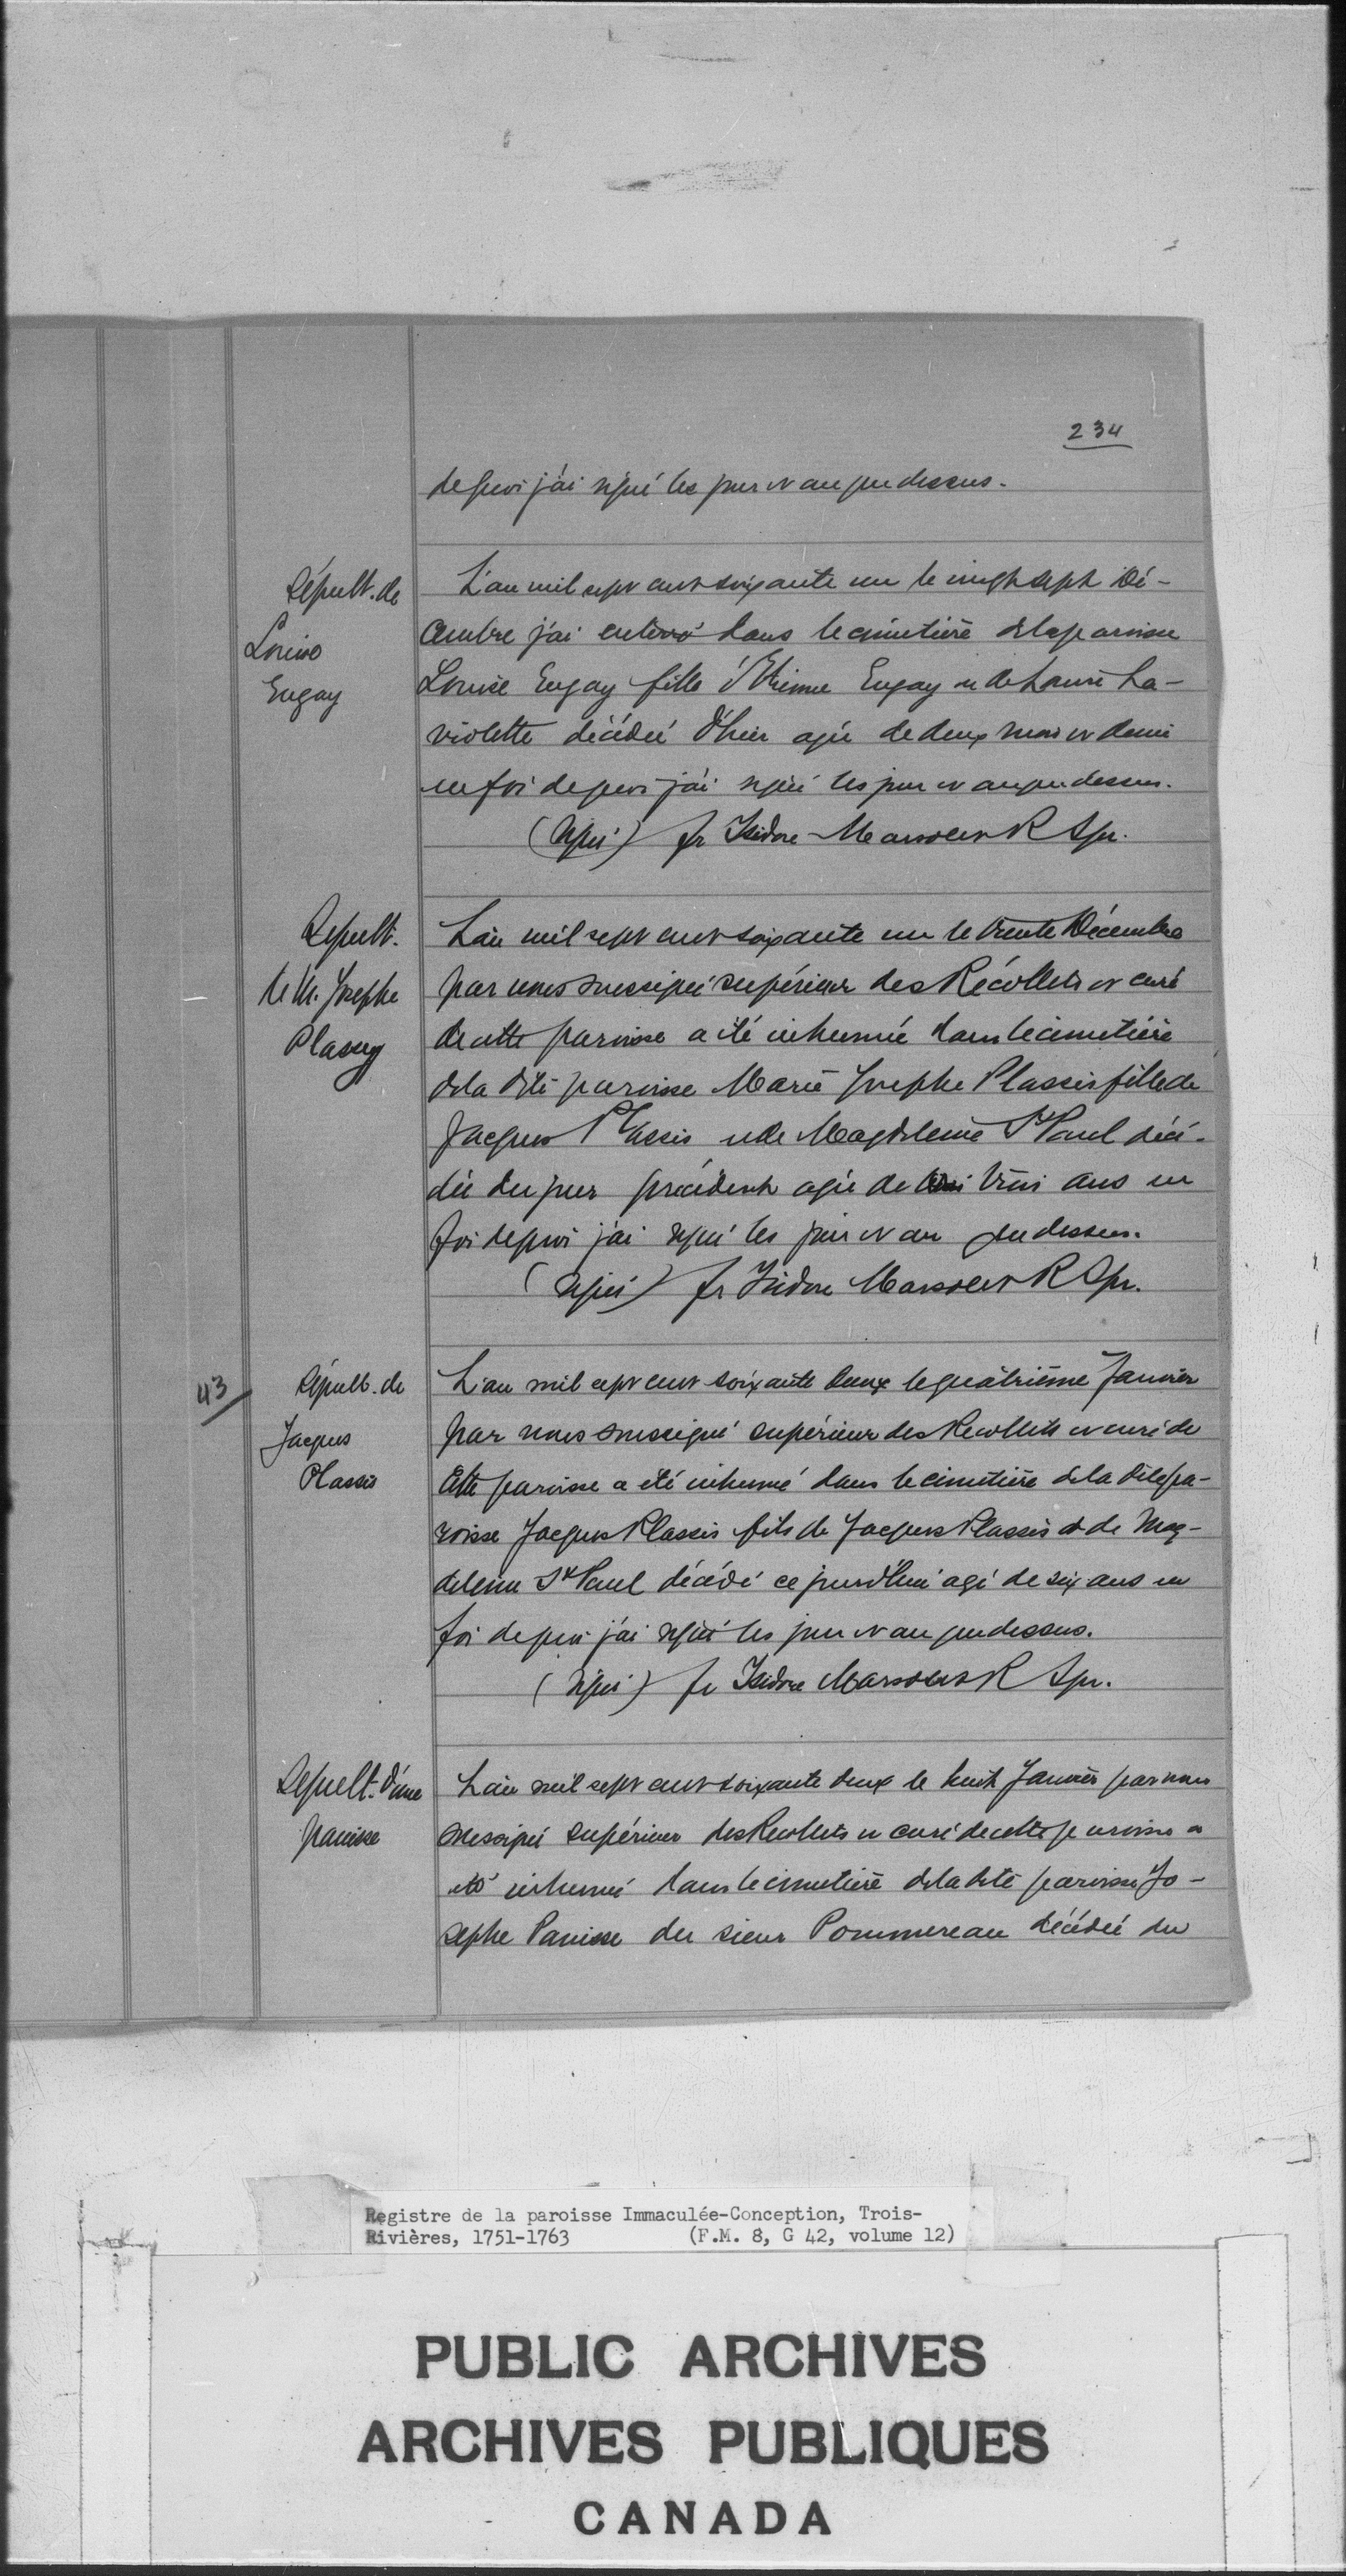 234
de quoi j'ai signé les jour et an que dessus.
Sépult. de
Louise
Eugay
L'an mil sept cent soixante un le vingt sept Dé-
cembre j'ai enterré dans le cimetière dela paroisse
Louise Eugay fille d'Etienne Eugay et de Louise La-
violette décédée d'hier agée de deux mois et demi
en foi de quoi j'ai signé les jour et an que dessus.
(signé) fr Isidore Marsolet R Spr.
Sepult.
de M. Josephe
Plassy
L'an mil sept cent soixante un le trente Décembre
par nous soussigné supérieur des Récollets et curé
de cette paroisse a été inhumée dans le cimetière
dela dite paroisse Marie Josephe Plassis fille de
Jacques Plassis et de Magdeleine St Paul décé-
dée du jour précédent agée de trois ans en
foi de quoi j'ai signé les jour et an que dessus.
(signé) fr Isidore Marsolet R Spr.
43
Sépult. de
Jacques
Plassis
L'an mil sept cent soixante deux le quatrième Janvier
par nous soussigné supérieur des Recollets et curé de
cette paroisse a été inhumé dans le cimetière dela dite pa-
roisse Jacques Plassis fils de Jacques Plassis et de Mag-
deleine St Paul décédé ce jourd'hui agé de six ans en
foi de quoi j'ai signé les jour et an que dessus.
(signé) fr Isidore Marsolet R Spr.
Sepult. d'une
panisse
L'an mil sept cent soixante deux le huit Janvier par nous
soussigné supérieur des Recollets et curé de cette paroisse a
été inhumé dans le cimetière dela dite paroisse Jo-
sephe Panisse du sieur Pommereau décédée du
Registre de la paroisse Immaculée-Conception, Trois-
Rivières, 1751-1763 (F.M. 8, G 42, volume 12)
PUBLIC ARCHIVES
ARCHIVES PUBLIQUES
CANADA